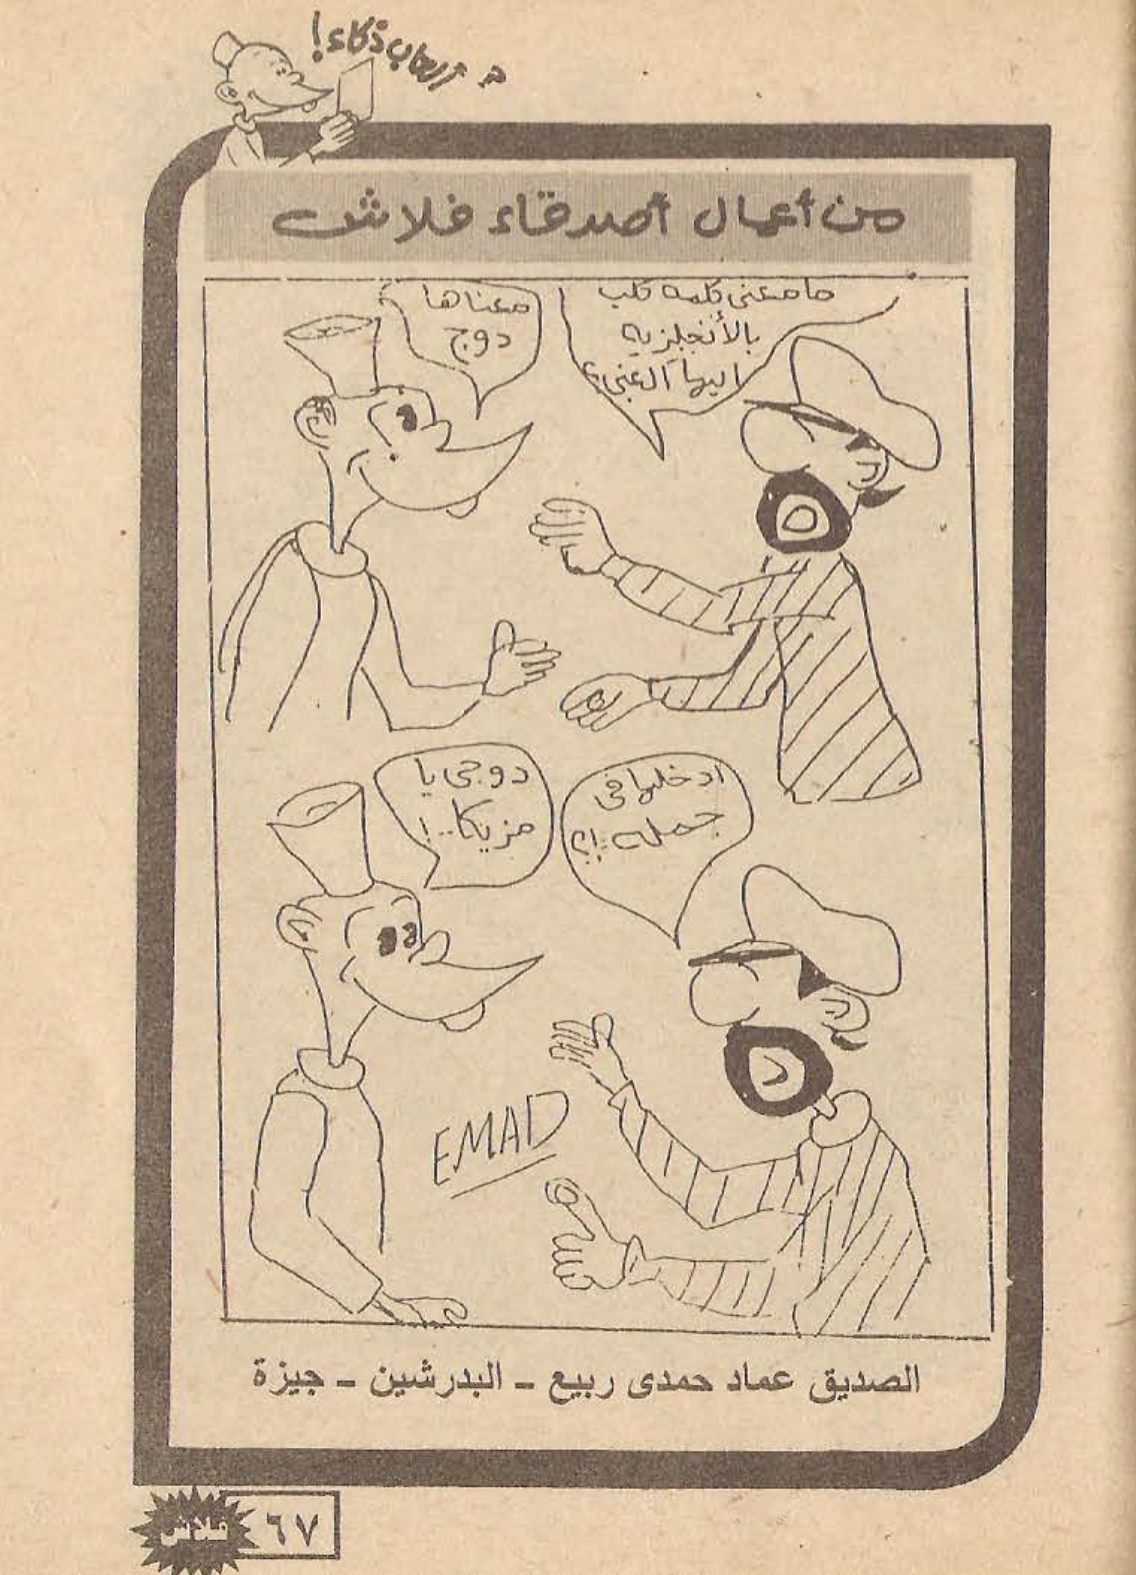 أصحاب ذكاء!
من أعمال أصدقاء فلاش
ما معنى كلمه كلب
بالأنجلزيه
ايها الغبى؟
معناها
دوج
ادخلها فى
جمله..!؟
دوجى يا
مزيكا..!
EMAD
الصديق عماد حمدى ربيع ـ البدرشين ـ جيزة
فلاش
٦٧